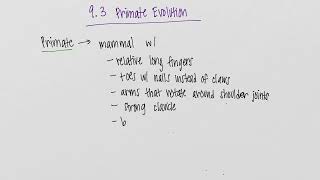 9.3 Primate Evolution
Primate → mammal w/
- relative long fingers
- toes w/ nails instead of claws
- arms that rotate around shoulder joints
- strong clavicle
- b